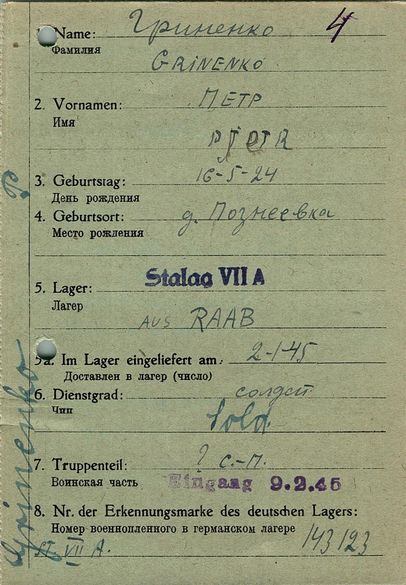 1. Name: Гриненко 4
Фамилия
GRINENKO
2. Vornamen: ПЕТР
Имя
PJOTR
3. Geburtstag: 16-5-24
День рождения
4. Geburtsort: д. Познеевка
Место рождения
5. Lager: Stalag VII A
Лагер
aus RAAB
5a. Im Lager eingeliefert am: 2-1-45
Доставлен в лагер (число)
6. Dienstgrad: солдат
Чин Sold.
7. Truppenteil: ? с.-п.
Воинская часть Eingang 9.2.45
8. Nr. der Erkennungsmarke des deutschen Lagers:
Номер военнопленного в германском лагере
VII A. 143123
Grinenko P